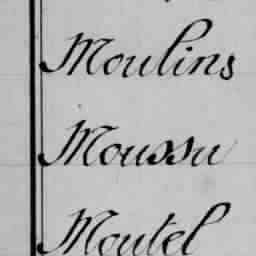 Moulins
Moussu
Moutel